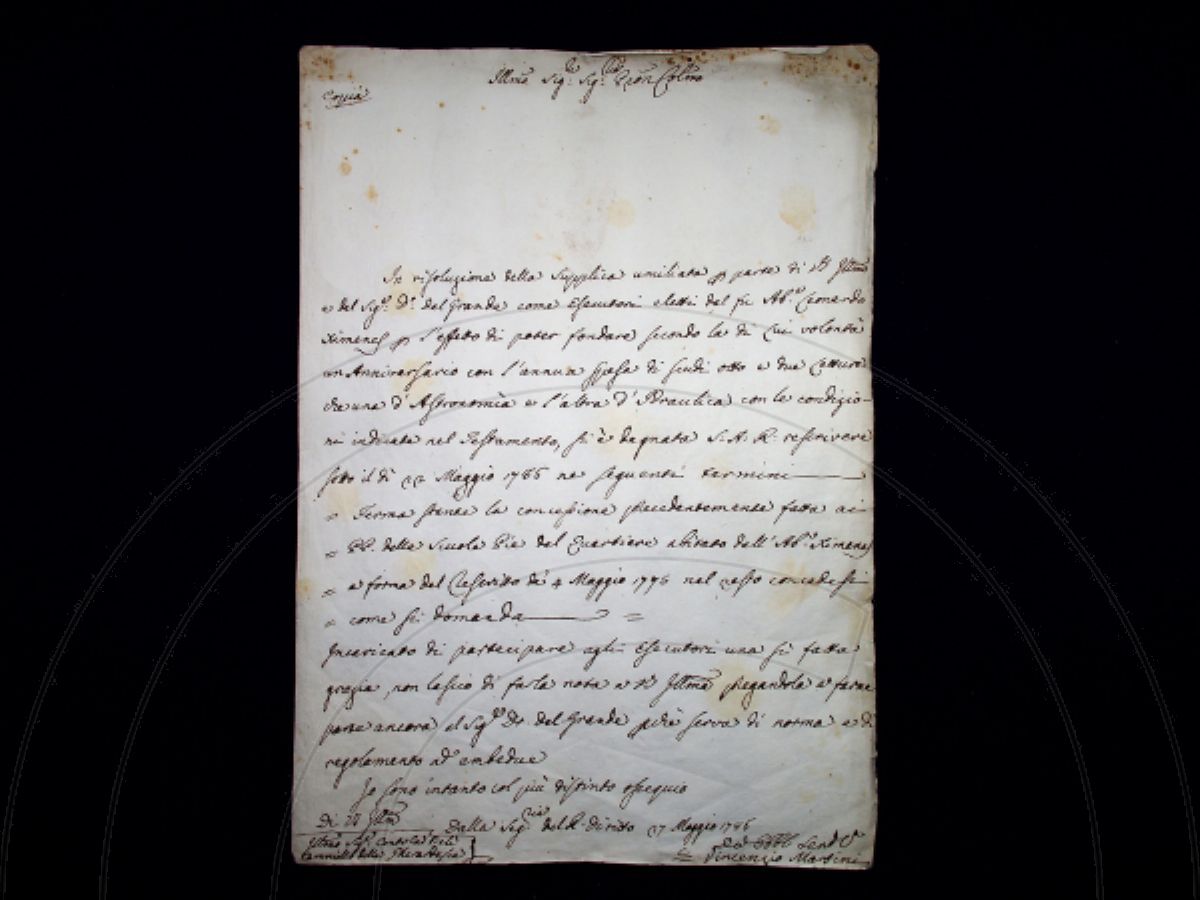 Illmo Sig.re Sig.re Pron Colmo
Copia
In risoluzione della Supplica umiliata p parte di VS Illma
e del Sig.r D.r del Grande come Esecutori eletti del fu Ab.e Leonardo
Ximenes p l'effetto di poter fondare secondo la di lui volontà
un Anniversario con l'annua spesa di scudi otto e due Letture
che una d'Astronomia e l'altra d'Idraulica con le condizio-
ni indicate nel Testamento, si è degnata S. A. R. rescrivere
sotto il dì 22 Maggio 1786 ne seguenti termini
= Ferma stante la concessione precedentemente fatta ai
= PP. delle Scuole Pie del Quartiere abitato dall'Ab.e Ximenes
= a forma del Rescritto de 4 Maggio 1776 nel resto concedesi
= come si domanda =
Incaricato di partecipare agli Esecutori una sì fatta
grazia, non lascio di farla nota a VS Illma pregandola a farne
parte ancora al Sig.re Dr. del Grande pchè serva di norma e di
regolamento ad ambedue
Io sono intanto col più distinto ossequio
Di VS Illma
Dalla Seg.ria del R. Diritto 27 Maggio 1786
Illmo Sig.
Vincenzio Martini